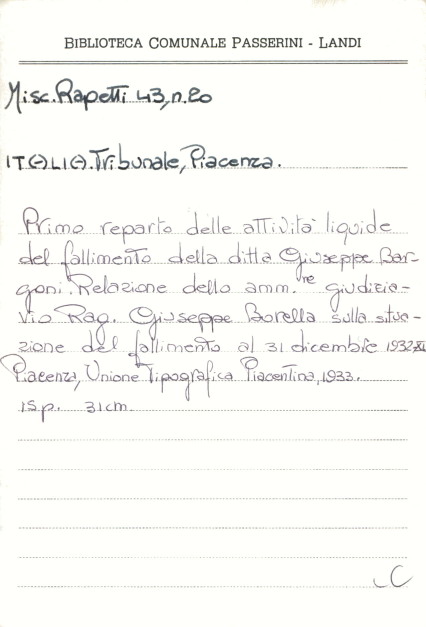 BIBLIOTECA COMUNALE PASSERINI - LANDI
Misc. Rapetti 43, n. 20
ITALIA. Tribunale, Piacenza.
Primo reparto delle attività liquide
del fallimento della ditta Giuseppe Bar-
goni. Relazione dello amm.re giudizia-
rio Rag. Giuseppe Borella sulla situa-
zione del fallimento al 31 dicembre 1932 XI
Piacenza, Unione Tipografica Piacentina, 1933.
15 p. 31 cm.